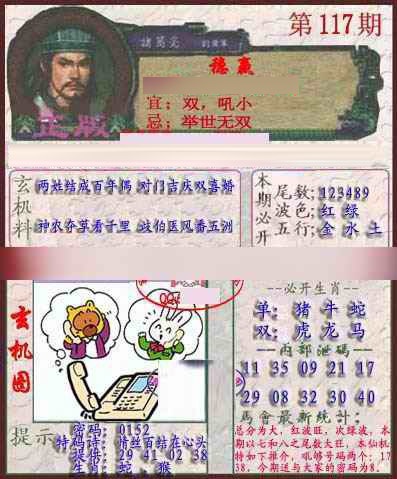 第117期
諸葛亮
穩贏
宜；双，吼小
忌；举世无双
正版
玄机料
两姓结成百年偶 对门吉庆双喜婚
神农夺草看千里 歧伯医风番五洲
本期必开
尾数;123489
波色;红 绿
五行;金 水 土
玄机图
QQ:
提示
密码：0152
特码诗：情丝百结在心头
提倍：29 41 02 38
生肖：蛇、猴
--必开生肖--
单：猪 牛 蛇
双：虎 龙 马
--内部泄码--
11 35 09 21 17
29 08 32 30 40
馬會最新統計：
总分为大，红波旺，次绿波，本
期以七和八之尾数大旺，本仙机
特如下推介，吼够号码两个：17
38。今期送与大家的密码为8。